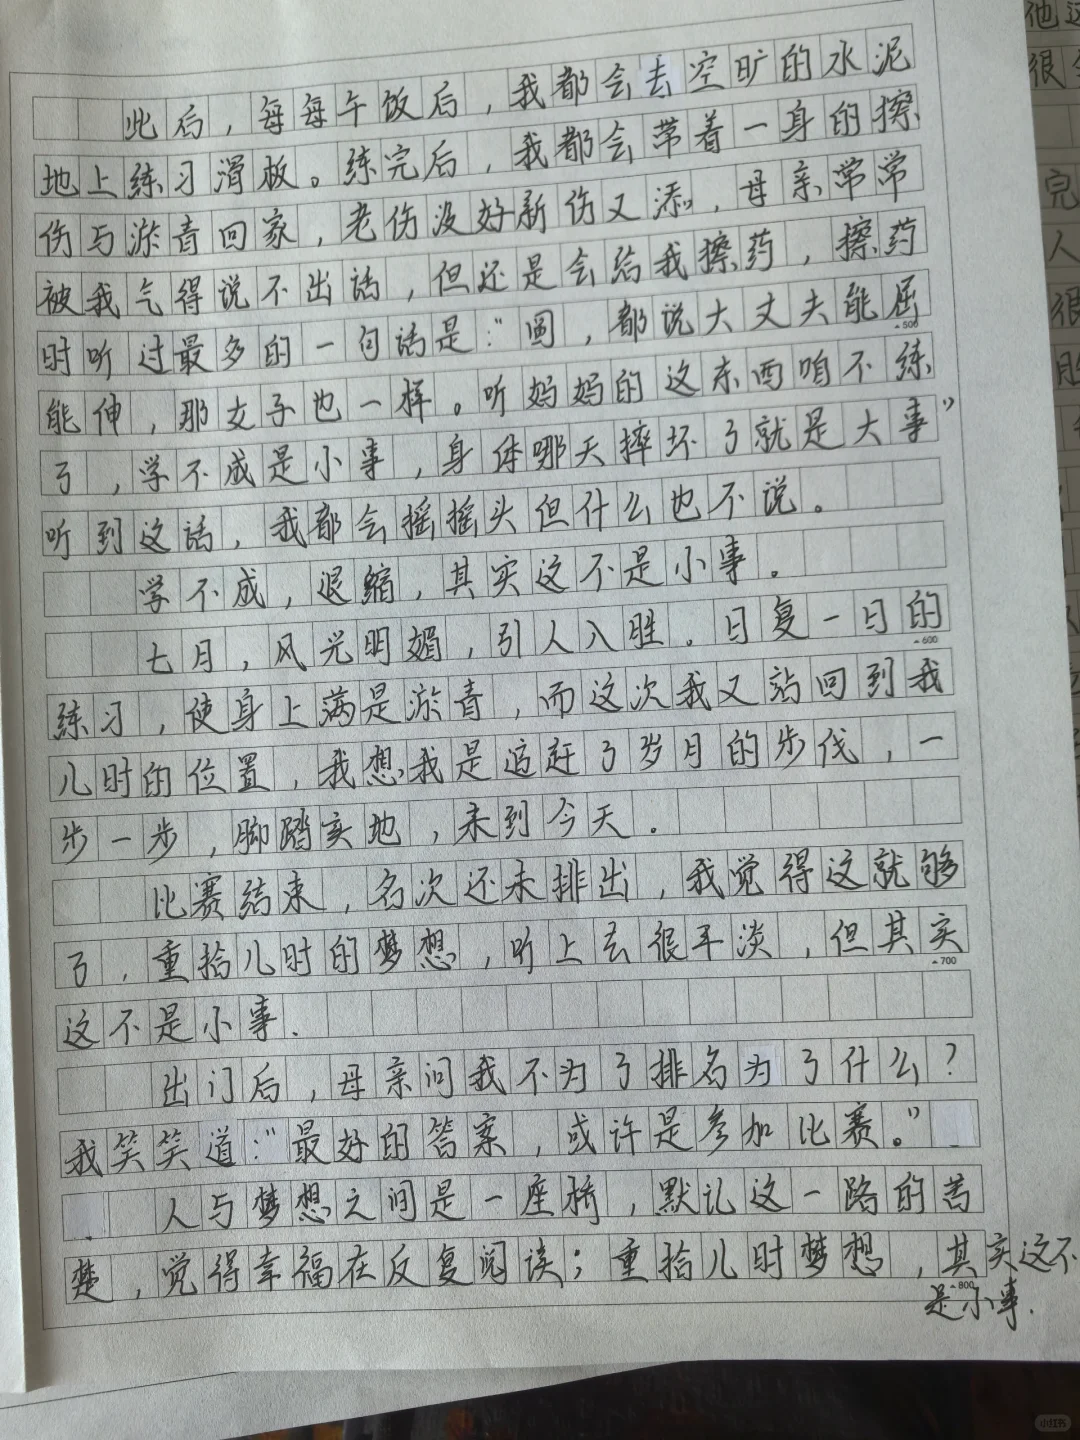 此后，每每午饭后，我都会去空旷的水泥
地上练习滑板。练完后，我都会带着一身的擦
伤与淤青回家，老伤没好新伤又添，母亲常常
被我气得说不出话，但还是会给我擦药，擦药
时听过最多的一句话是："囡，都说大丈夫能屈
500
能伸，那女子也一样。听妈妈的这东西咱不练
了，学不成是小事，身体哪天摔坏了就是大事"
听到这话，我都会摇摇头但什么也不说。
学不成，退缩，其实这不是小事。
七月，风光明媚，引人入胜。日复一日的
600
练习，使身上满是淤青，而这次我又站回到我
儿时的位置，我想我是追赶了岁月的步伐，一
步一步，脚踏实地，来到今天。
比赛结束，名次还未排出，我觉得这就够
了，重拾儿时的梦想，听上去很平淡，但其实
700
这不是小事.
出门后，母亲问我不为了排名为了什么？
我笑笑道："最好的答案，或许是参加比赛。"
人与梦想之间是一座桥，默记这一路的苦
楚，觉得幸福在反复阅读；重拾儿时梦想，其实这不
800
是小事.